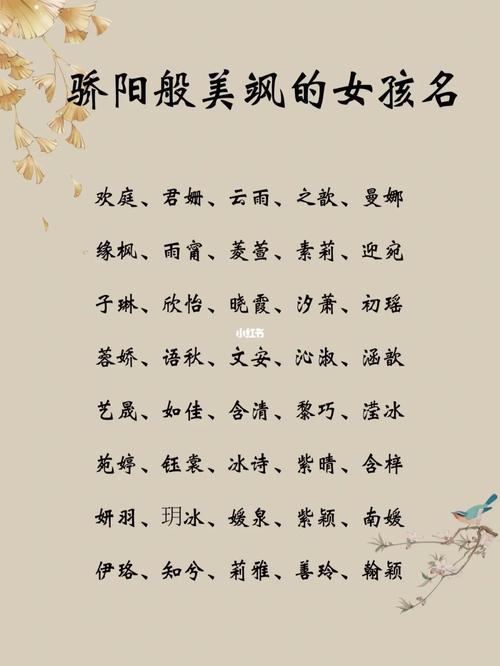 骄阳般美飒的女孩名
欢庭、君姗、云雨、之歆、曼娜
缘枫、雨甯、菱萱、素莉、迎宛
子琳、欣怡、晓霞、汐萧、初瑶
小红书
蓉娇、语秋、文安、沁淑、涵歆
艺晟、如佳、含清、黎巧、滢冰
苑婷、钰裳、冰诗、紫晴、含梓
妍羽、玥冰、媛泉、紫颖、南媛
伊珞、知兮、莉雅、善玲、翰颖